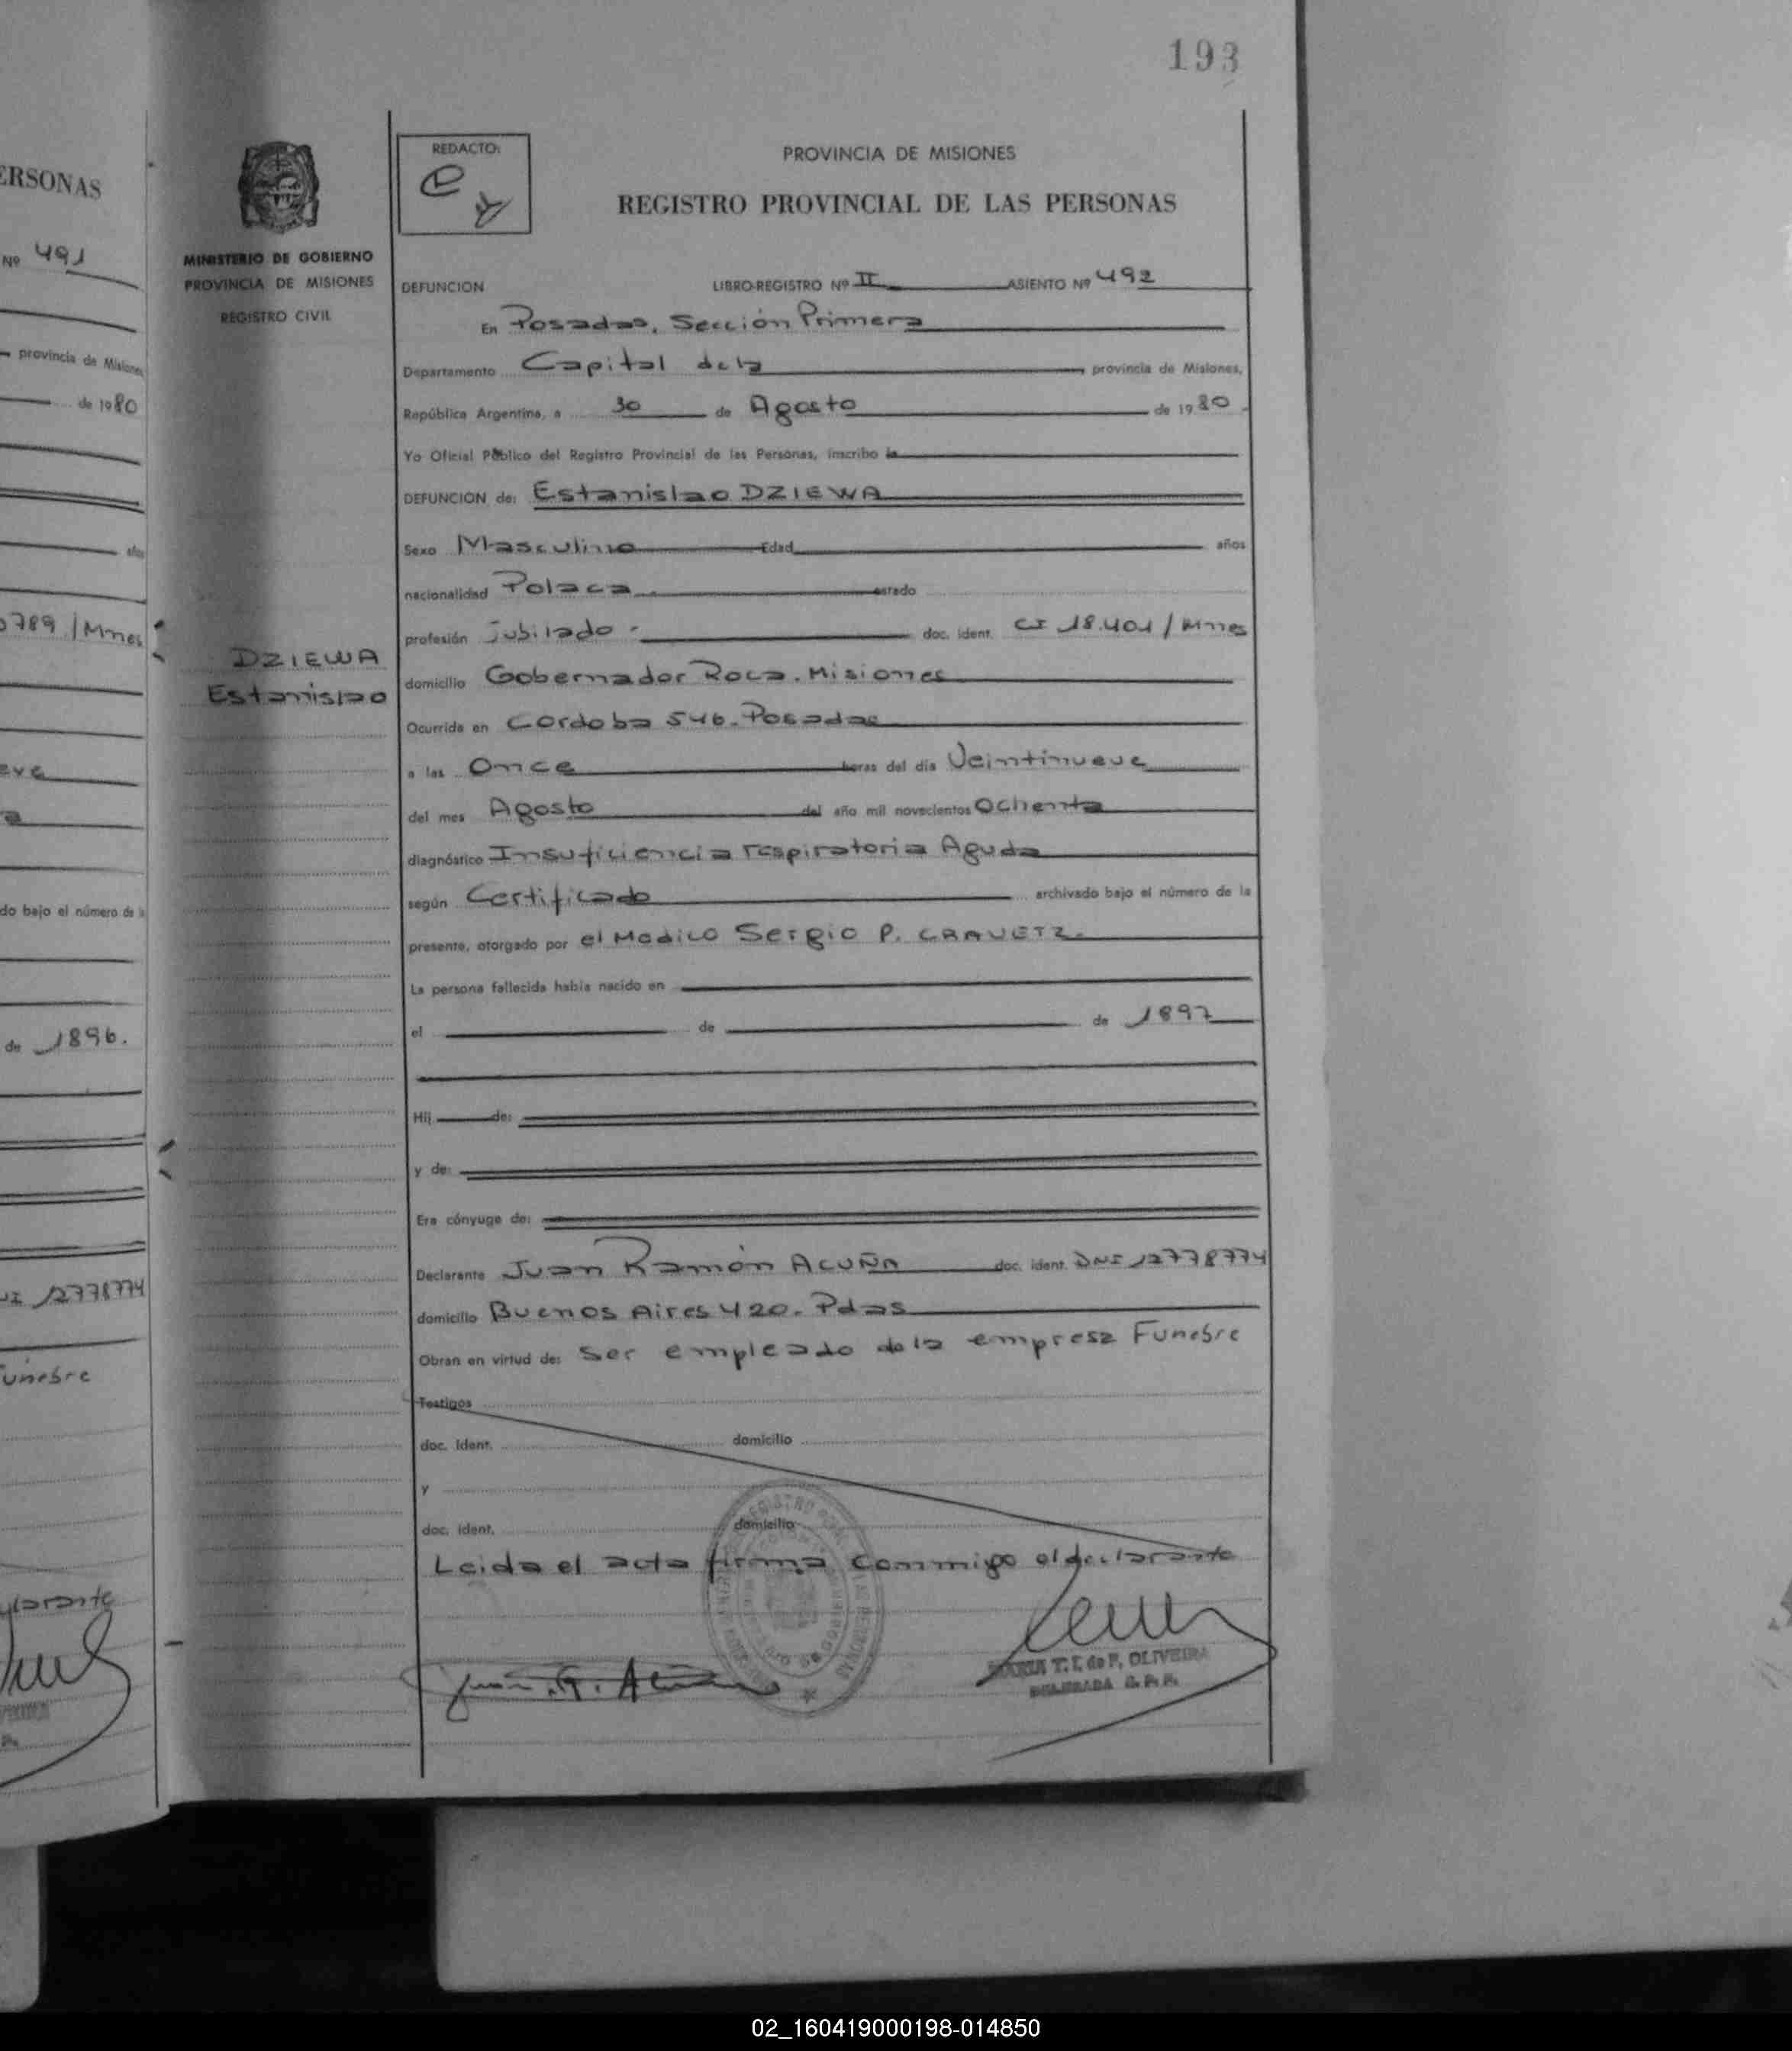 193
ERSONAS
Nº 491
provincia de Misiones,
de 1980
años
0789 / Mnes
eve
a
do bajo el número de la
de 1896.
12778774
Funebre
MINISTERIO DE GOBIERNO
PROVINCIA DE MISIONES
REGISTRO CIVIL
DZIEWA
Estanislao
REDACTO:
PROVINCIA DE MISIONES
REGISTRO PROVINCIAL DE LAS PERSONAS
DEFUNCION LIBRO-REGISTRO Nº II ASIENTO Nº 492
En Posadas, Sección Primera
Departamento Capital de la provincia de Misiones,
República Argentina, a 30 de Agosto de 1980.
Yo Oficial Público del Registro Provincial de las Personas, inscribo la
DEFUNCION de: Estanislao DZIEWA
Sexo Masculino Edad años
nacionalidad Polaca estado
profesión jubilado doc. ident. CI 18.401 / Mnes
domicilio Gobernador Roca. Misiones
Ocurrida en Cordoba 546. Posadas
a las Once horas del día Veintinueve
del mes Agosto del año mil novecientos Ochenta
diagnóstico Insuficiencia respiratoria Aguda
según Certificado archivado bajo el número de la
presente, otorgado por el Medico Sergio P. CRAVETZ.
La persona fallecida había nacido en
el de de 1897
Hij de:
y de:
Era cónyuge de:
Declarante Juan Ramón ACUÑA doc. ident. DNI 12778774
domicilio Buenos Aires 420. Pdas
Obran en virtud de: Ser empleado de la empresa Funebre
Testigos
doc. ident. domicilio
y
doc. ident. domicilio
Leida el acta firma conmigo el declarante
MARIA T. I. de P. OLIVEIRA
DELEGADA R. P. P.
02_160419000198-014850